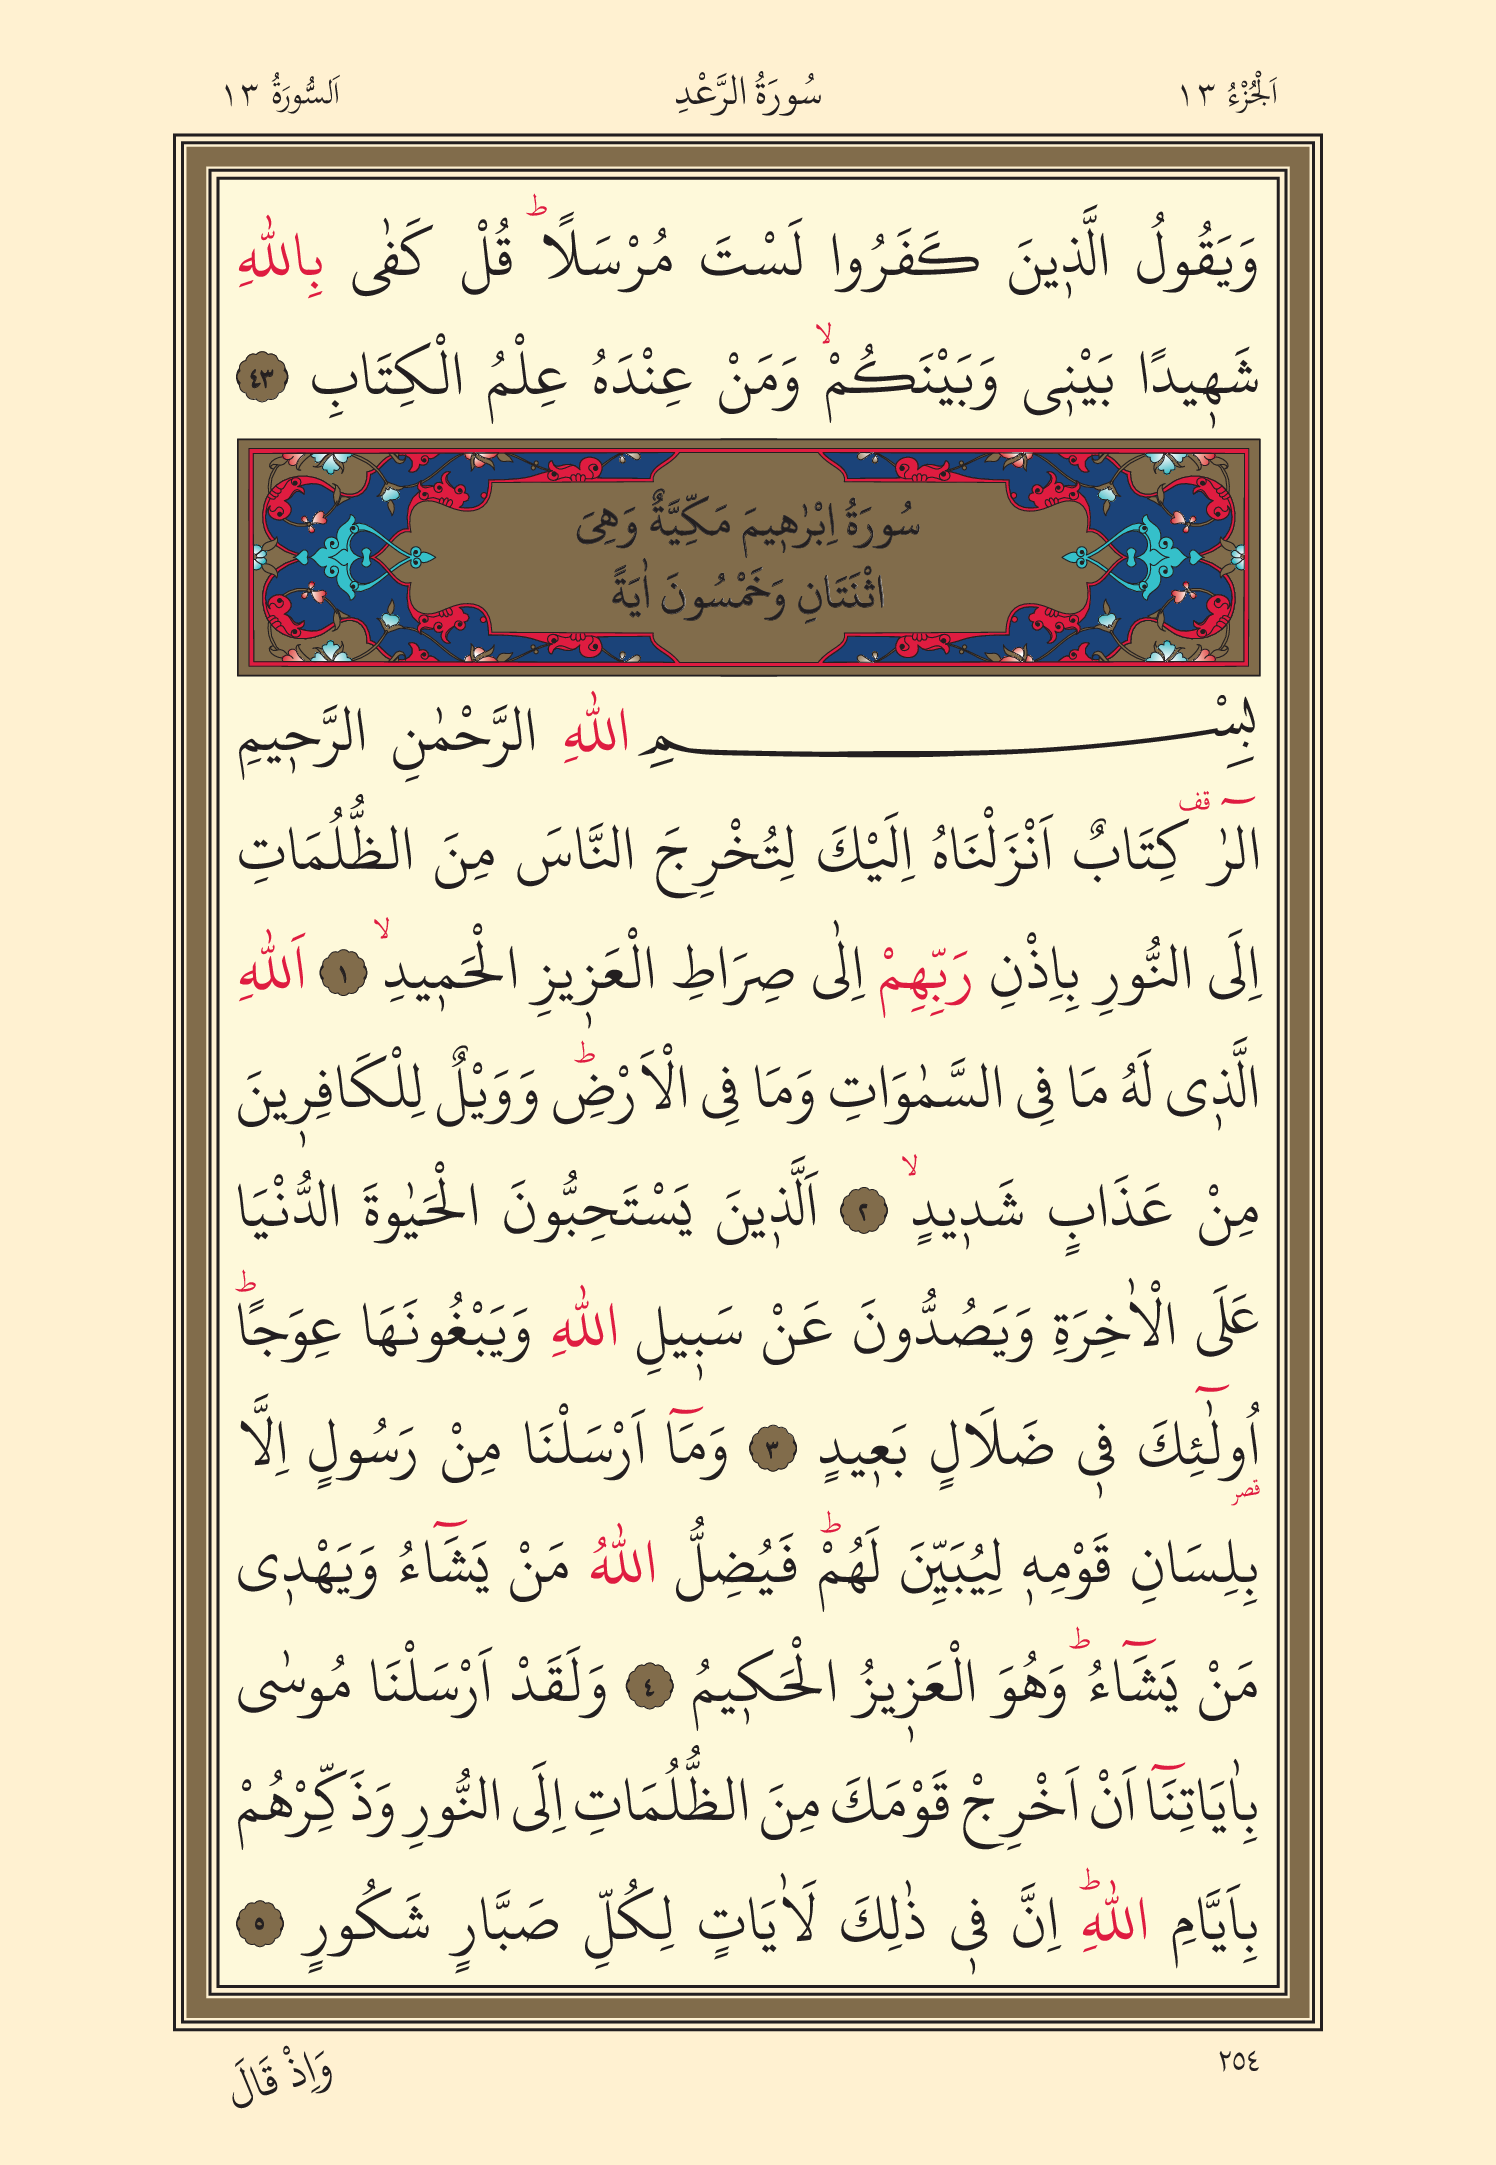 اَلْجُزْءُ ١٣ سُورَةُ الرَّعْدِ اَلسُّورَةُ ١٣
وَيَقُولُ الَّذ۪ينَ كَفَرُوا لَسْتَ مُرْسَلًاۜ قُلْ كَفٰى بِاللّٰهِ
شَه۪يدًا بَيْن۪ى وَبَيْنَكُمْۙ وَمَنْ عِنْدَهُ عِلْمُ الْكِتَابِ ٤٣
سُورَةُ اِبْرٰه۪يمَ مَكِّيَّةٌ وَهِىَ
اثْنَتَانِ وَخَمْسُونَ اٰيَةً
بِسْمِ اللّٰهِ الرَّحْمٰنِ الرَّح۪يمِ
الٓرٰ۠ كِتَابٌ اَنْزَلْنَاهُ اِلَيْكَ لِتُخْرِجَ النَّاسَ مِنَ الظُّلُمَاتِ
اِلَى النُّورِ بِاِذْنِ رَبِّهِمْ اِلٰى صِرَاطِ الْعَز۪يزِ الْحَم۪يدِۙ ١ اَللّٰهِ
الَّذ۪ى لَهُ مَا فِى السَّمٰوَاتِ وَمَا فِى الْاَرْضِۜ وَوَيْلٌ لِلْكَافِر۪ينَ
مِنْ عَذَابٍ شَد۪يدٍۙ ٢ اَلَّذ۪ينَ يَسْتَحِبُّونَ الْحَيٰوةَ الدُّنْيَا
عَلَى الْاٰخِرَةِ وَيَصُدُّونَ عَنْ سَب۪يلِ اللّٰهِ وَيَبْغُونَهَا عِوَجًاۜ
اُو۬لٰٓئِكَ ف۪ى ضَلَالٍ بَع۪يدٍ ٣ وَمَٓا اَرْسَلْنَا مِنْ رَسُولٍ اِلَّا
بِلِسَانِ قَوْمِه۪ لِيُبَيِّنَ لَهُمْۜ فَيُضِلُّ اللّٰهُ مَنْ يَشَٓاءُ وَيَهْد۪ى
مَنْ يَشَٓاءُۜ وَهُوَ الْعَز۪يزُ الْحَك۪يمُ ٤ وَلَقَدْ اَرْسَلْنَا مُوسٰى
بِاٰيَاتِنَٓا اَنْ اَخْرِجْ قَوْمَكَ مِنَ الظُّلُمَاتِ اِلَى النُّورِ وَذَكِّرْهُمْ
بِاَيَّامِ اللّٰهِۜ اِنَّ ف۪ى ذٰلِكَ لَاٰيَاتٍ لِكُلِّ صَبَّارٍ شَكُورٍ ٥
٢٥٤ وَاِذْ قَالَ